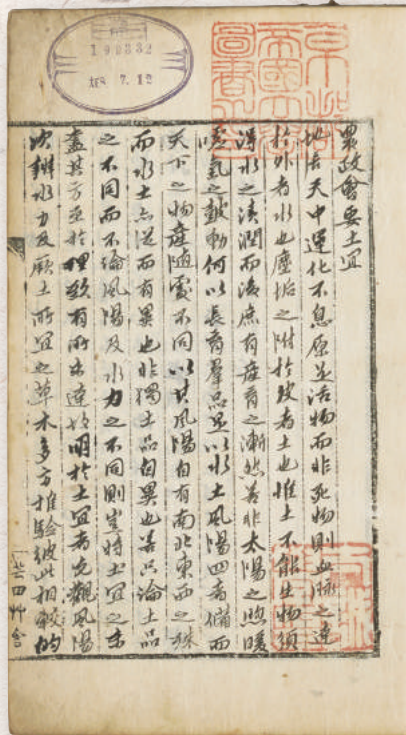 農政會要土宜
地在天中運化不息原是活物而非死物則血脉之達
於外者水也塵垢之附於皮者土也惟土不能生物須
得水之漬潤而後庶有產育之漸然若非太陽之煦暖
噯氣之鼓動何以長育羣品是以水土風陽四者備而
天下之物產隨處不同以其風陽自有南北東西之殊
而水土亦從而有異也非獨土品自異也若只論土品
之不同而不論風陽及水力之不同則豈特土宜之未
盡其方至於種藝有所未達故明於土宜者先觀風陽
次辨水力及厥土所宜之草木多方推驗彼此相較的
京城帝國大學圖書章
昭8. 7. 12